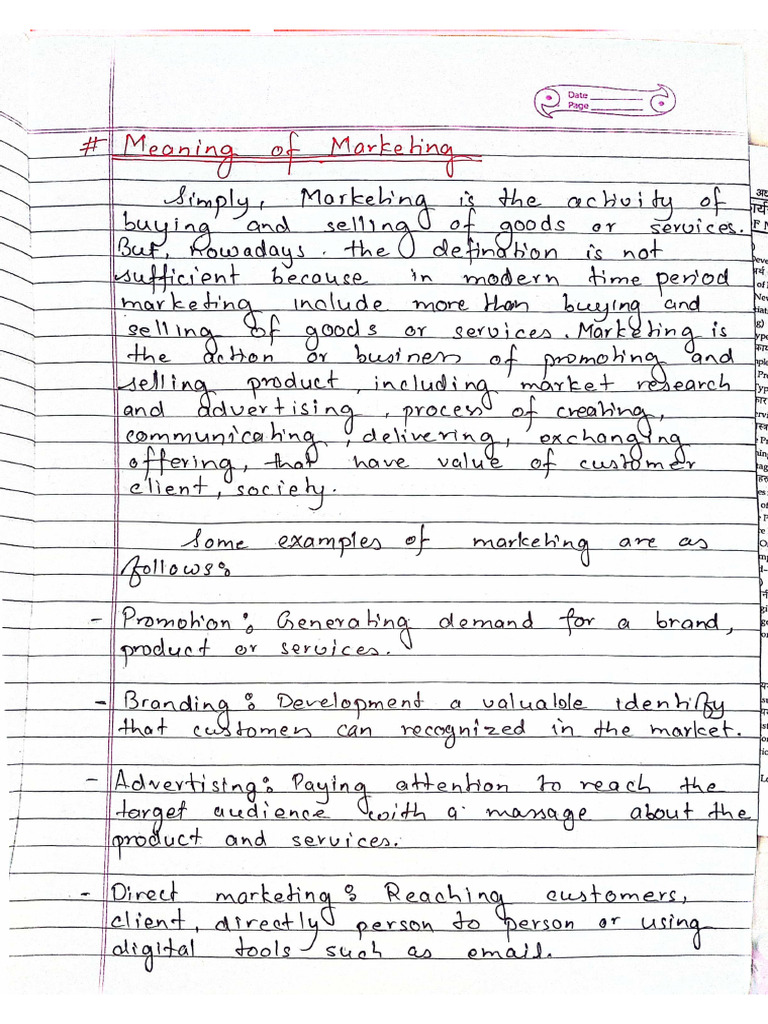 Date
Page
# Meaning of Marketing
Simply, Marketing is the activity of
buying and selling of goods or services.
But, Nowadays. the defination is not
sufficient because in modern time period
marketing include more than buying and
selling of goods or services. Marketing is
the action or business of promoting and
selling product, including market research
and advertising, process of creating,
communicating, delivering, exchanging
offering, that have value of customer
client, society.
Some examples of marketing are as
follows:
- Promotion: Generating demand for a brand,
product or services.
- Branding: Development a valuable identify
that customers can recognized in the market.
- Advertising: Paying attention to reach the
target audience with a massage about the
product and services.
- Direct marketing: Reaching customers,
client, directly person to person or using
digital tools such as email.